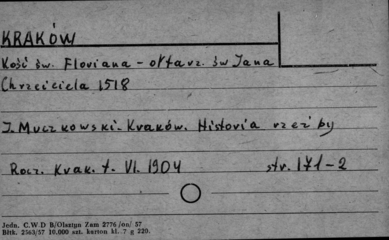 KRAKÓW
Kość św. Floriana - ołtarz św Jana
Chrzciciela 1518
J. Muczkowski - Kraków. Historia rzeźby
Rocz. Krak. t. VI. 1904 str. 171-2
Jedn. C.W.D B/Olsztyn Zam 2776/on/ 57
Błtk. 2563/57 10.000 szt. karton kl. 7 g 220.